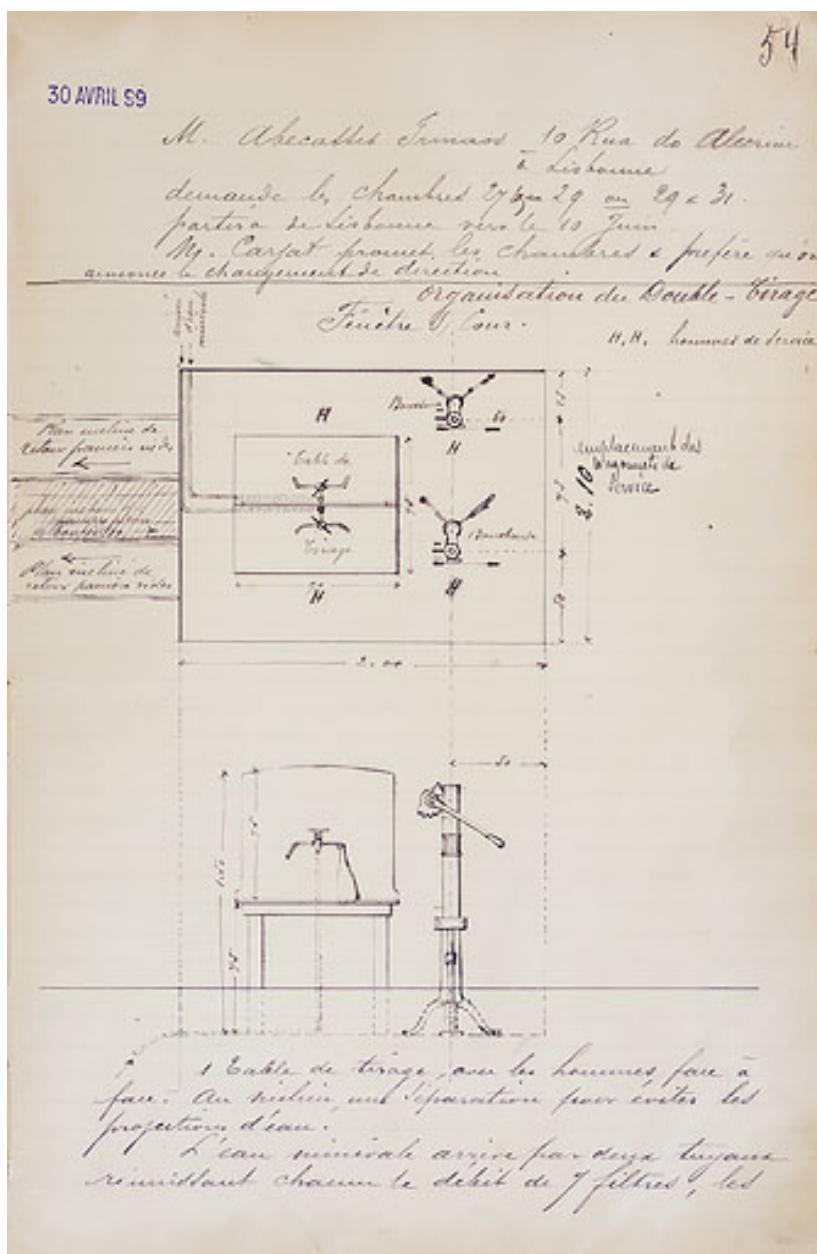 54
30 AVRIL 99
M. Abecassis Irmaos 10 Rua do Alecrim
à Lisbonne
demande les chambres 27 29 ou 29 & 31.
partira de Lisbonne vers le 10 Juin
M. Carjat promet les chambres & préfère qu'on
annonce le changement de direction
Organisation du Double-Tirage
Fenêtre Cour.
H.H. hommes de service
d'eau
minérale
Plan incliné de
retour paniers vides
plan incliné
Plan incliné de
retour paniers vides
H
Table de
Tirage
H
H
50
H
emplacement des
wagonnets de
Service
3.10
2.00
50
75
1.50
75
1 Table de tirage, avec les hommes face à
face. Au milieu, une séparation pour éviter les
projections d'eau.
L'eau minérale arrive par deux tuyaux
réunissant chacun le débit de 7 filtres, les